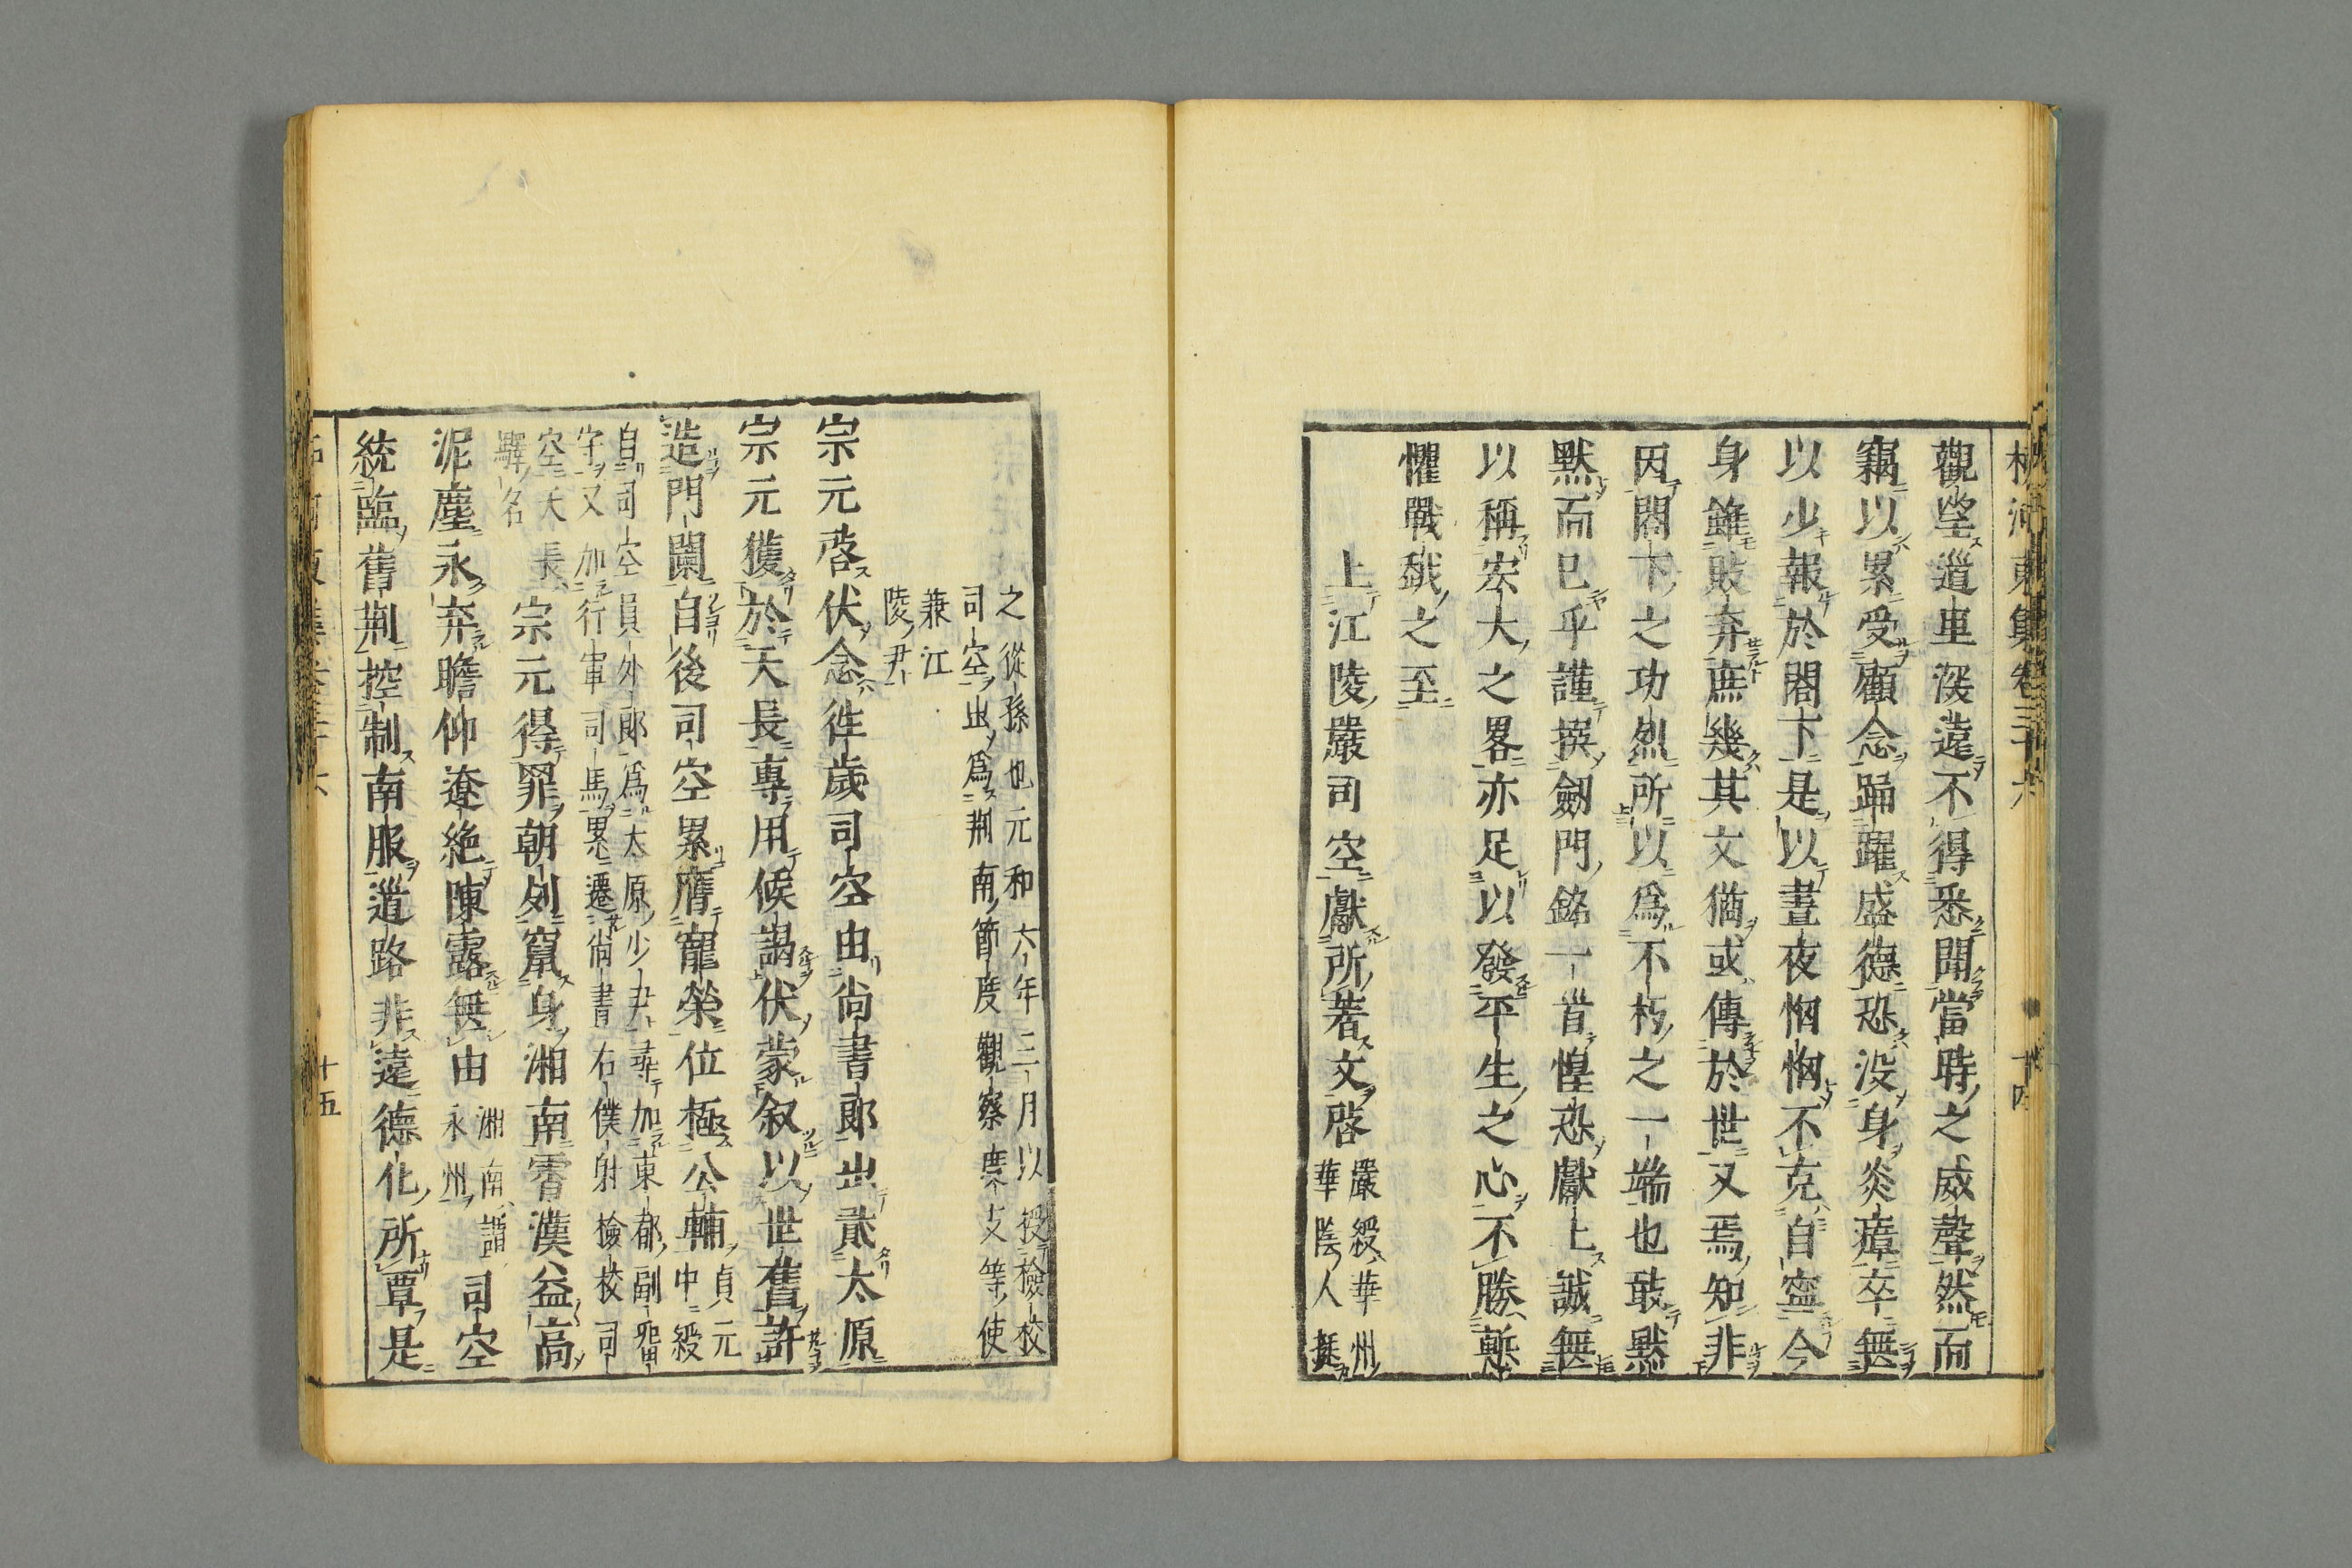 柳河東集卷三十六
十四
觀望道里深遠不得悉聞當時之威聲然而
竊以累受顧念踊躍盛德恐没身炎瘴卒無
以少報於閤下是以晝夜恟恟不克自寧今
身雖敗弃庶幾其文猶或傳於世又焉知非
因閤下之功烈所以爲不朽之一端也敢默
默而已乎謹撰劒門銘一首惶恐獻上誠無
以稱宏大之畧亦足以發平生之心不勝慙
懼戰越之至
上江陵嚴司空獻所著文啓
嚴綬華州
華陰人挺
之從孫也元和六年三月以授檢校
司空出爲荆南節度觀察度支等使
兼江
陵尹
宗元啓伏念徃歲司空由尚書郎出貳太原
宗元獲於天長專用候謁伏蒙叙以世舊許
造門闌自後司空累膺寵榮位極公輔
貞元
中綬
自司空員外郎爲太原少尹尋加東都副畱
守又加行軍司馬累遷尚書右僕射檢校司
空天長
驛名
宗元得罪朝列竄身湘南霄漢益高
泥塵永弃瞻仰遼絶陳露無由
湘南謂
永州
司空
統臨舊荆控制南服道路非遠德化所覃是
十五